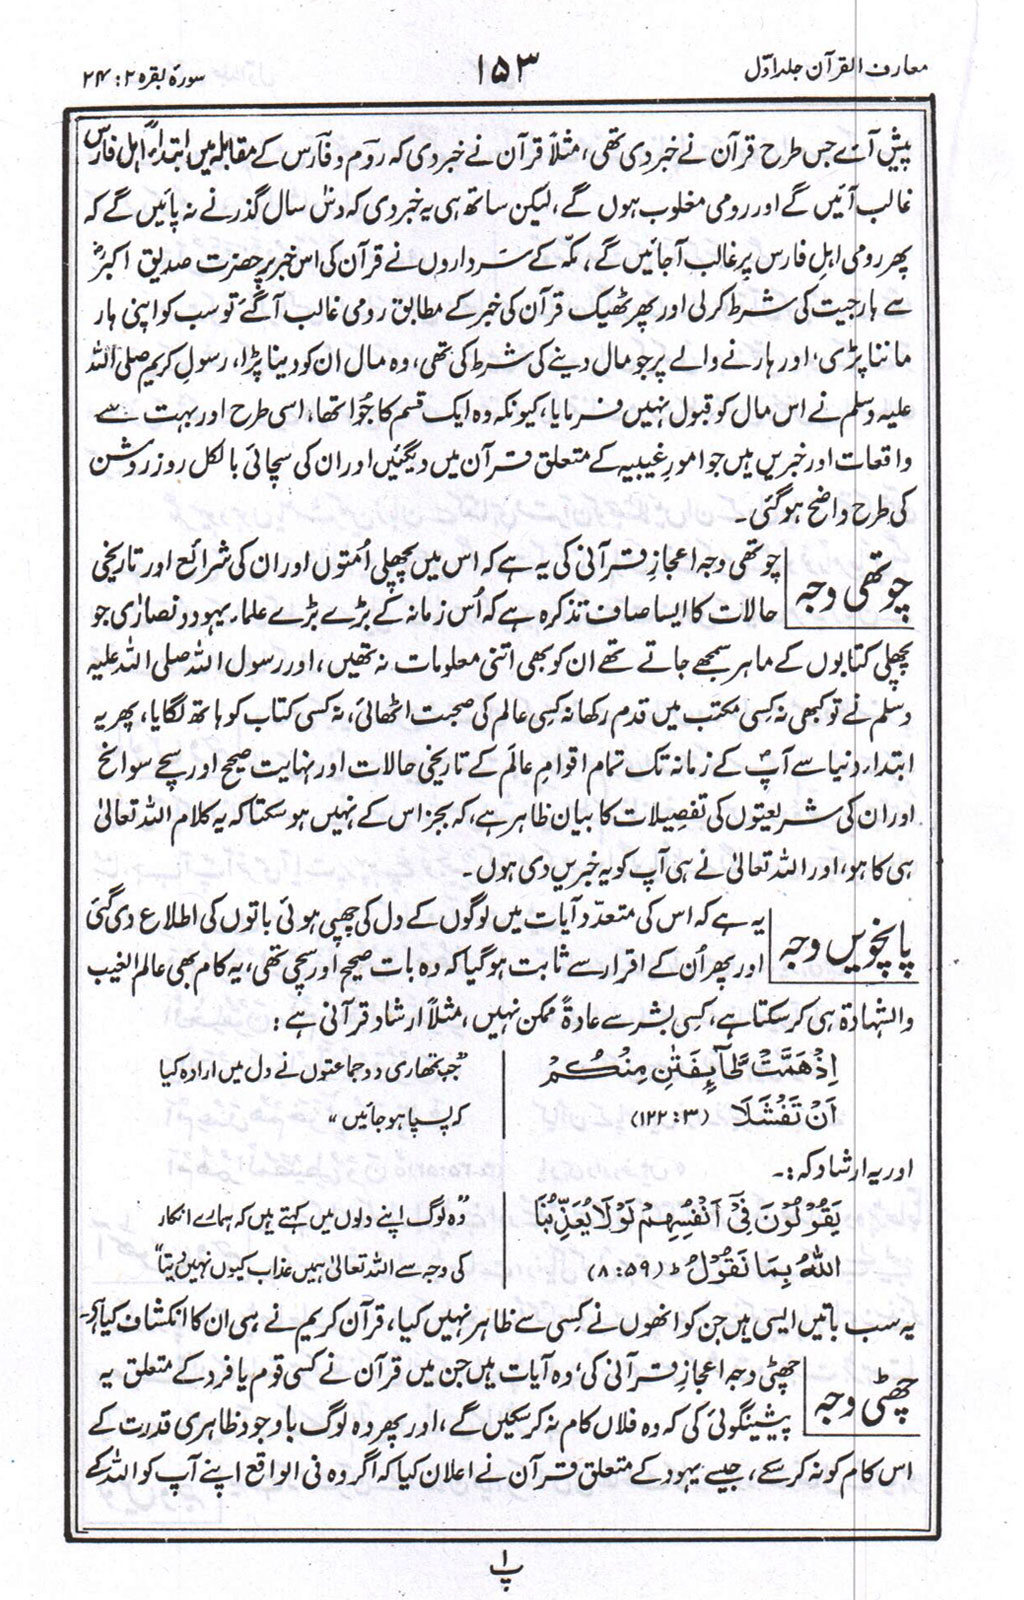 معارف القرآن جلد اوّل
۱۵۳
سورۂ بقرہ ۲ : ۲۴
پیش آئے جس طرح قرآن نے خبر دی تھی، مثلاً قرآن نے خبر دی کہ روم و فارس کے مقابلہ میں ابتداءً اہل فارس
غالب آئیں گے اور رومی مغلوب ہوں گے، لیکن ساتھ ہی یہ خبر دی کہ دس سال گذرنے نہ پائیں گے کہ
پھر رومی اہلِ فارس پر غالب آجائیں گے، مکّہ کے سرداروں نے قرآن کی اس خبر پر حضرت صدیق اکبرؓ
سے ہار جیت کی شرط کرلی اور پھر ٹھیک قرآن کی خبر کے مطابق رومی غالب آگئے تو سب کو اپنی ہار
ماننا پڑی، اور ہارنے والے پر جو مال دینے کی شرط کی تھی، وہ مال ان کو دینا پڑا، رسولِ کریم صلی اللہ
علیہ وسلم نے اس مال کو قبول نہیں فرمایا، کیونکہ وہ ایک قسم کا جُوا تھا، اسی طرح اور بہت سے
واقعات اور خبریں ہیں جو امورِ غیبیہ کے متعلق قرآن میں دیگئیں اور ان کی سچائی بالکل روز روشن
کی طرح واضح ہوگئی۔
چوتھی وجہ
چوتھی وجہ اعجازِ قرآنی کی یہ ہے کہ اس میں پچھلی اُمتوں اور ان کی شرائع اور تاریخی
حالات کا ایسا صاف تذکرہ ہے کہ اُس زمانہ کے بڑے بڑے علماء یہود و نصاریٰ جو
پچھلی کتابوں کے ماہر سمجھے جاتے تھے ان کو بھی اتنی معلومات نہ تھیں، اور رسول اللہ صلی اللہ علیہ
وسلم نے تو کبھی نہ کسی مکتب میں قدم رکھا نہ کسی عالم کی صحبت اٹھائی، نہ کسی کتاب کو ہاتھ لگایا، پھر یہ
ابتداء دنیا سے آپؐ کے زمانہ تک تمام اقوامِ عالَم کے تاریخی حالات اور نہایت صحیح اور سچے سوانح
اور ان کی شریعتوں کی تفصیلات کا بیان ظاہر ہے، کہ بجز اس کے نہیں ہوسکتا کہ یہ کلام اللہ تعالیٰ
ہی کا ہو، اور اللہ تعالیٰ نے ہی آپ کو یہ خبریں دی ہوں۔
پانچویں وجہ
یہ ہے کہ اس کی متعدّد آیات میں لوگوں کے دل کی چھپی ہوئی باتوں کی اطلاع دی گئی
اور پھر اُن کے اقرار سے ثابت ہوگیا کہ وہ بات صحیح اور سچی تھی، یہ کام بھی عالم الغیب
والشہادۃ ہی کرسکتا ہے، کسی بشر سے عادۃً ممکن نہیں، مثلاً ارشاد قرآنی ہے :
اِذْ هَمَّتْ طَّآئِفَتٰنِ مِنْكُمْ
اَنْ تَفْشَلَا (۳ : ۱۲۲)
”جب تمھاری دو جماعتوں نے دل میں ارادہ کیا
کہ پسپا ہوجائیں“
اور یہ ارشاد کہ :۔
يَقُوْلُوْنَ فِيْٓ اَنْفُسِهِمْ لَوْلَا يُعَذِّبُنَا
اللّٰهُ بِمَا نَقُوْلُ ط (۵۹ : ۸)
”وہ لوگ اپنے دلوں میں کہتے ہیں کہ ہمارے انکار
کی وجہ سے اللہ تعالیٰ ہمیں عذاب کیوں نہیں دیتا“
یہ سب باتیں ایسی ہیں جن کو انھوں نے کسی سے ظاہر نہیں کیا، قرآن کریم نے ہی ان کا انکشاف کیا ہے۔
چھٹی وجہ
چھٹی وجہ اعجازِ قرآنی کی، وہ آیات ہیں جن میں قرآن نے کسی قوم یا فرد کے متعلق یہ
پیشینگوئی کی کہ وہ فلاں کام نہ کرسکیں گے، اور پھر وہ لوگ باوجود ظاہری قدرت کے
اس کام کو نہ کرسکے، جیسے یہود کے متعلق قرآن نے اعلان کیا کہ اگر وہ فی الواقع اپنے آپ کو اللہ کے
پ۱